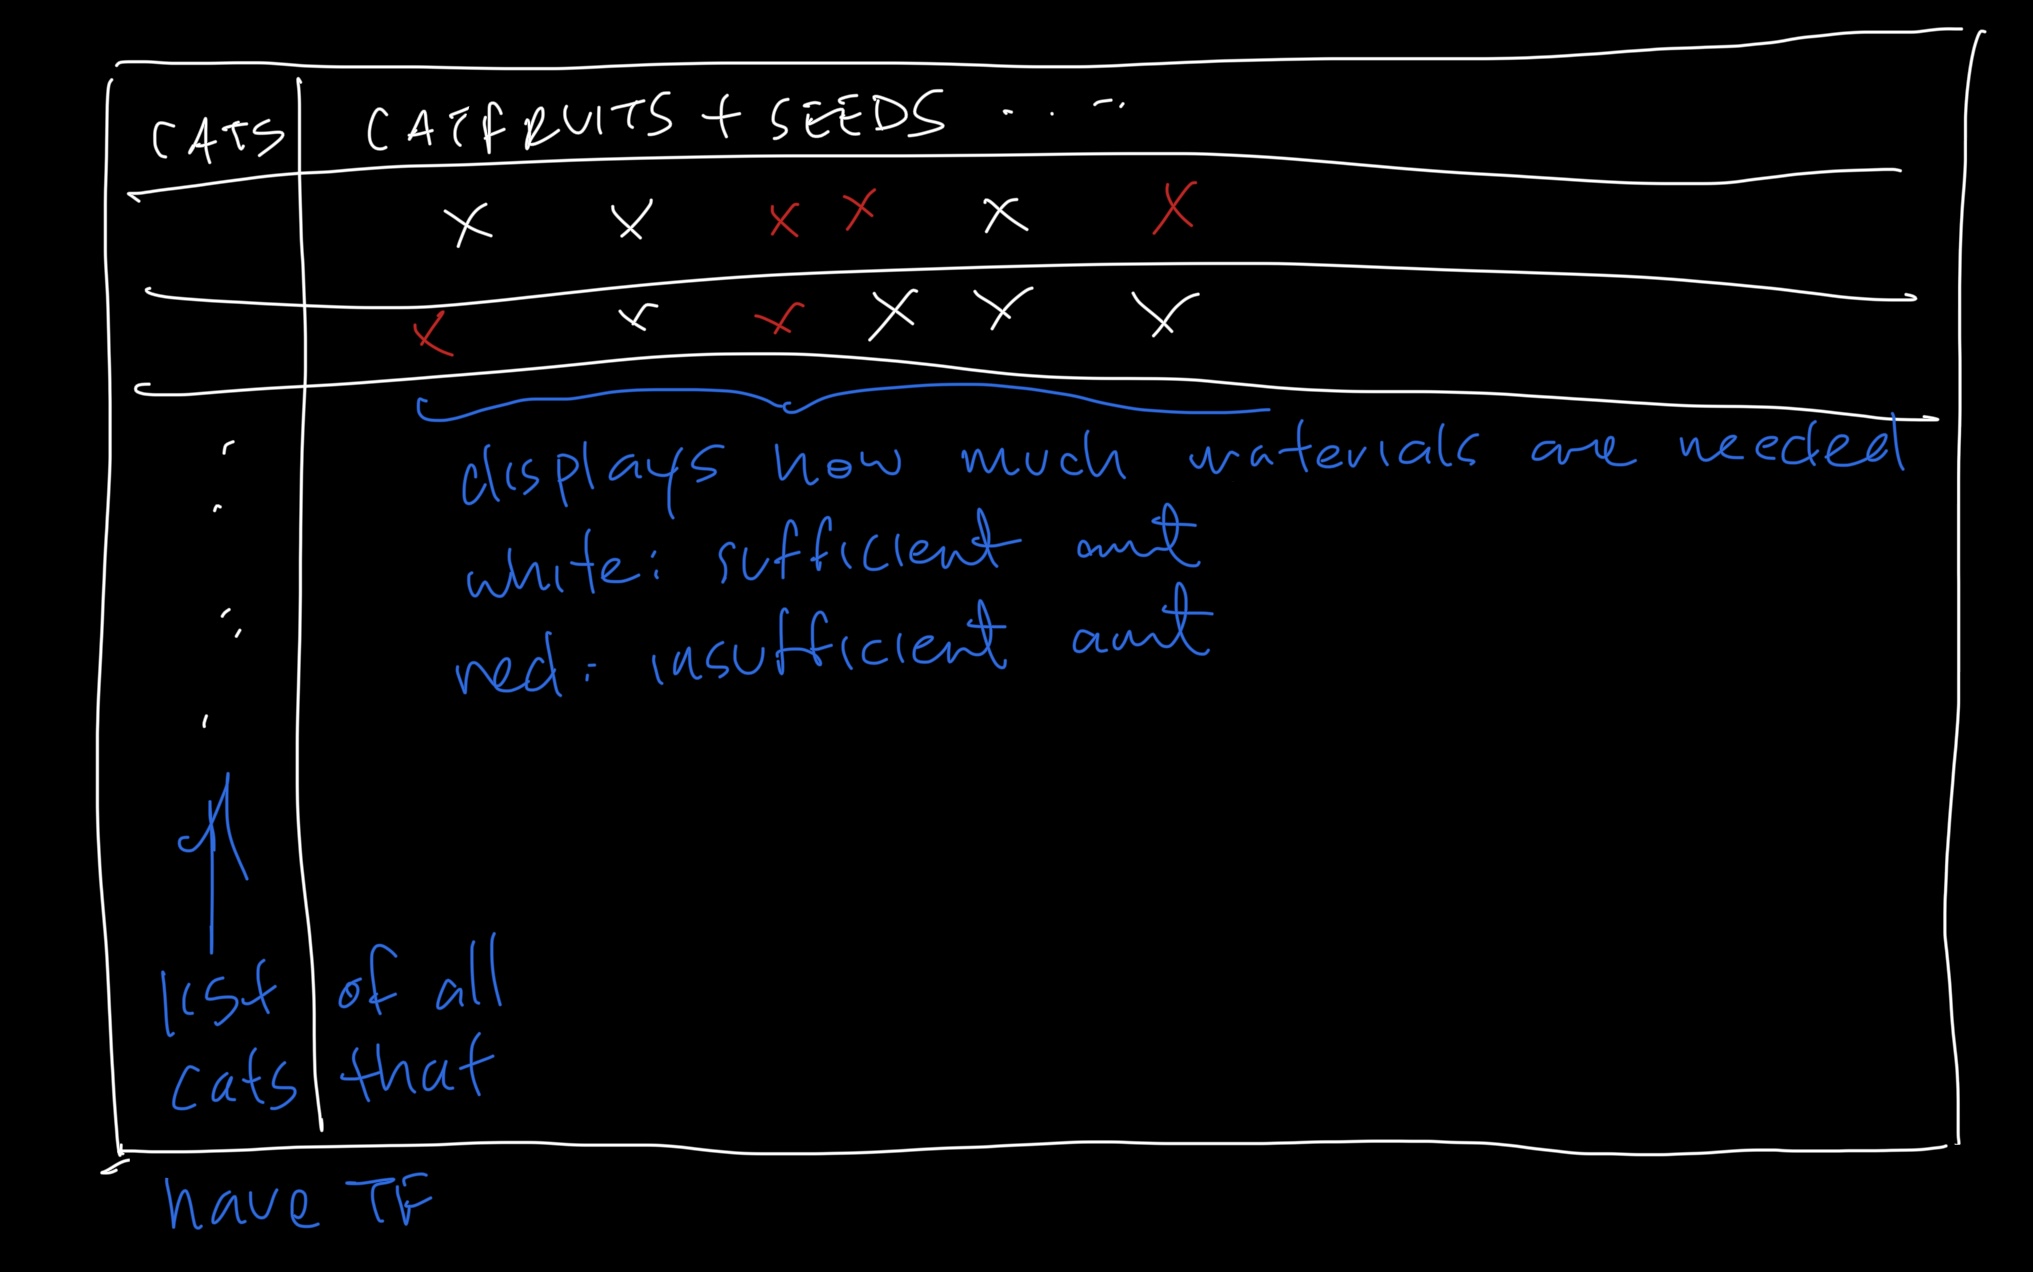 CATS CATFRUITS + SEEDS ....
X X X X X X
X X X X X X
displays how much materials are needed
white: sufficient amt
red: insufficient amt
list of all
cats that
have TF